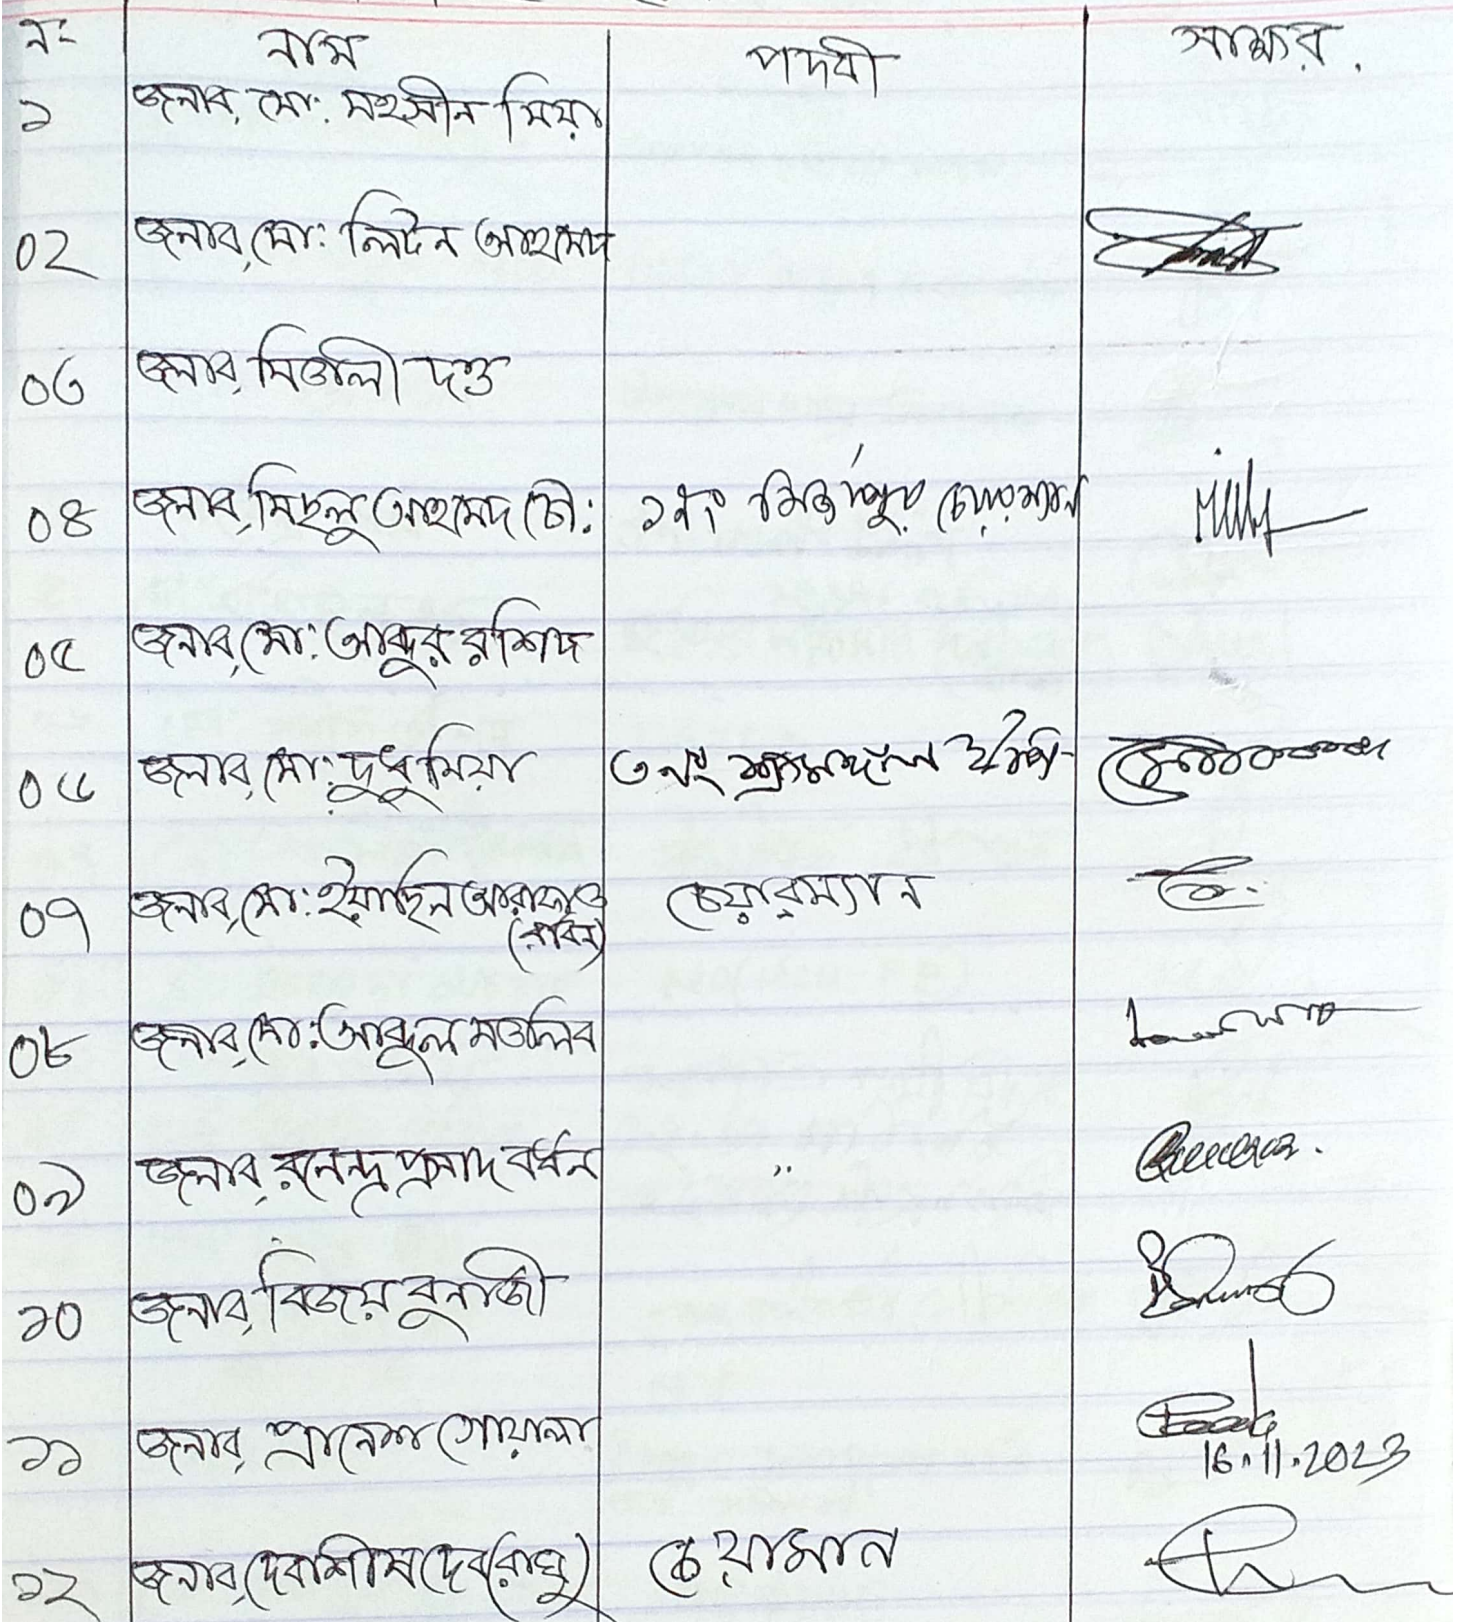 নং নাম পদবী সাক্ষর.
১ জনাব, মো: মহসীন মিয়া
০২ জনাব, মো: লিটন আহমেদ
০৩ জনাব, মিতালী দত্ত
০৪ জনাব, মিছলু আহমেদ চৌ: ১নং মির্জাপুর চেয়ারম্যান
০৫ জনাব, মো: আব্দুর রশিদ
০৬ জনাব, মো: দুধু মিয়া ৩নং শ্রীমঙ্গল ইউপি-
০৭ জনাব, মো: ইয়াছিন আরাফাত চেয়ারম্যান
(রবিন)
০৮ জনাব, মো: আব্দুল মতলিব
০৯ জনাব, রনেন্দ্র প্রসাদ বর্ধন "
১০ জনাব, বিজয় বুনার্জী
১১ জনাব, প্রানেশ গোয়ালা
16.11.2023
১২ জনাব, দেবাশীষ দেব (রাখু) চেয়ামান